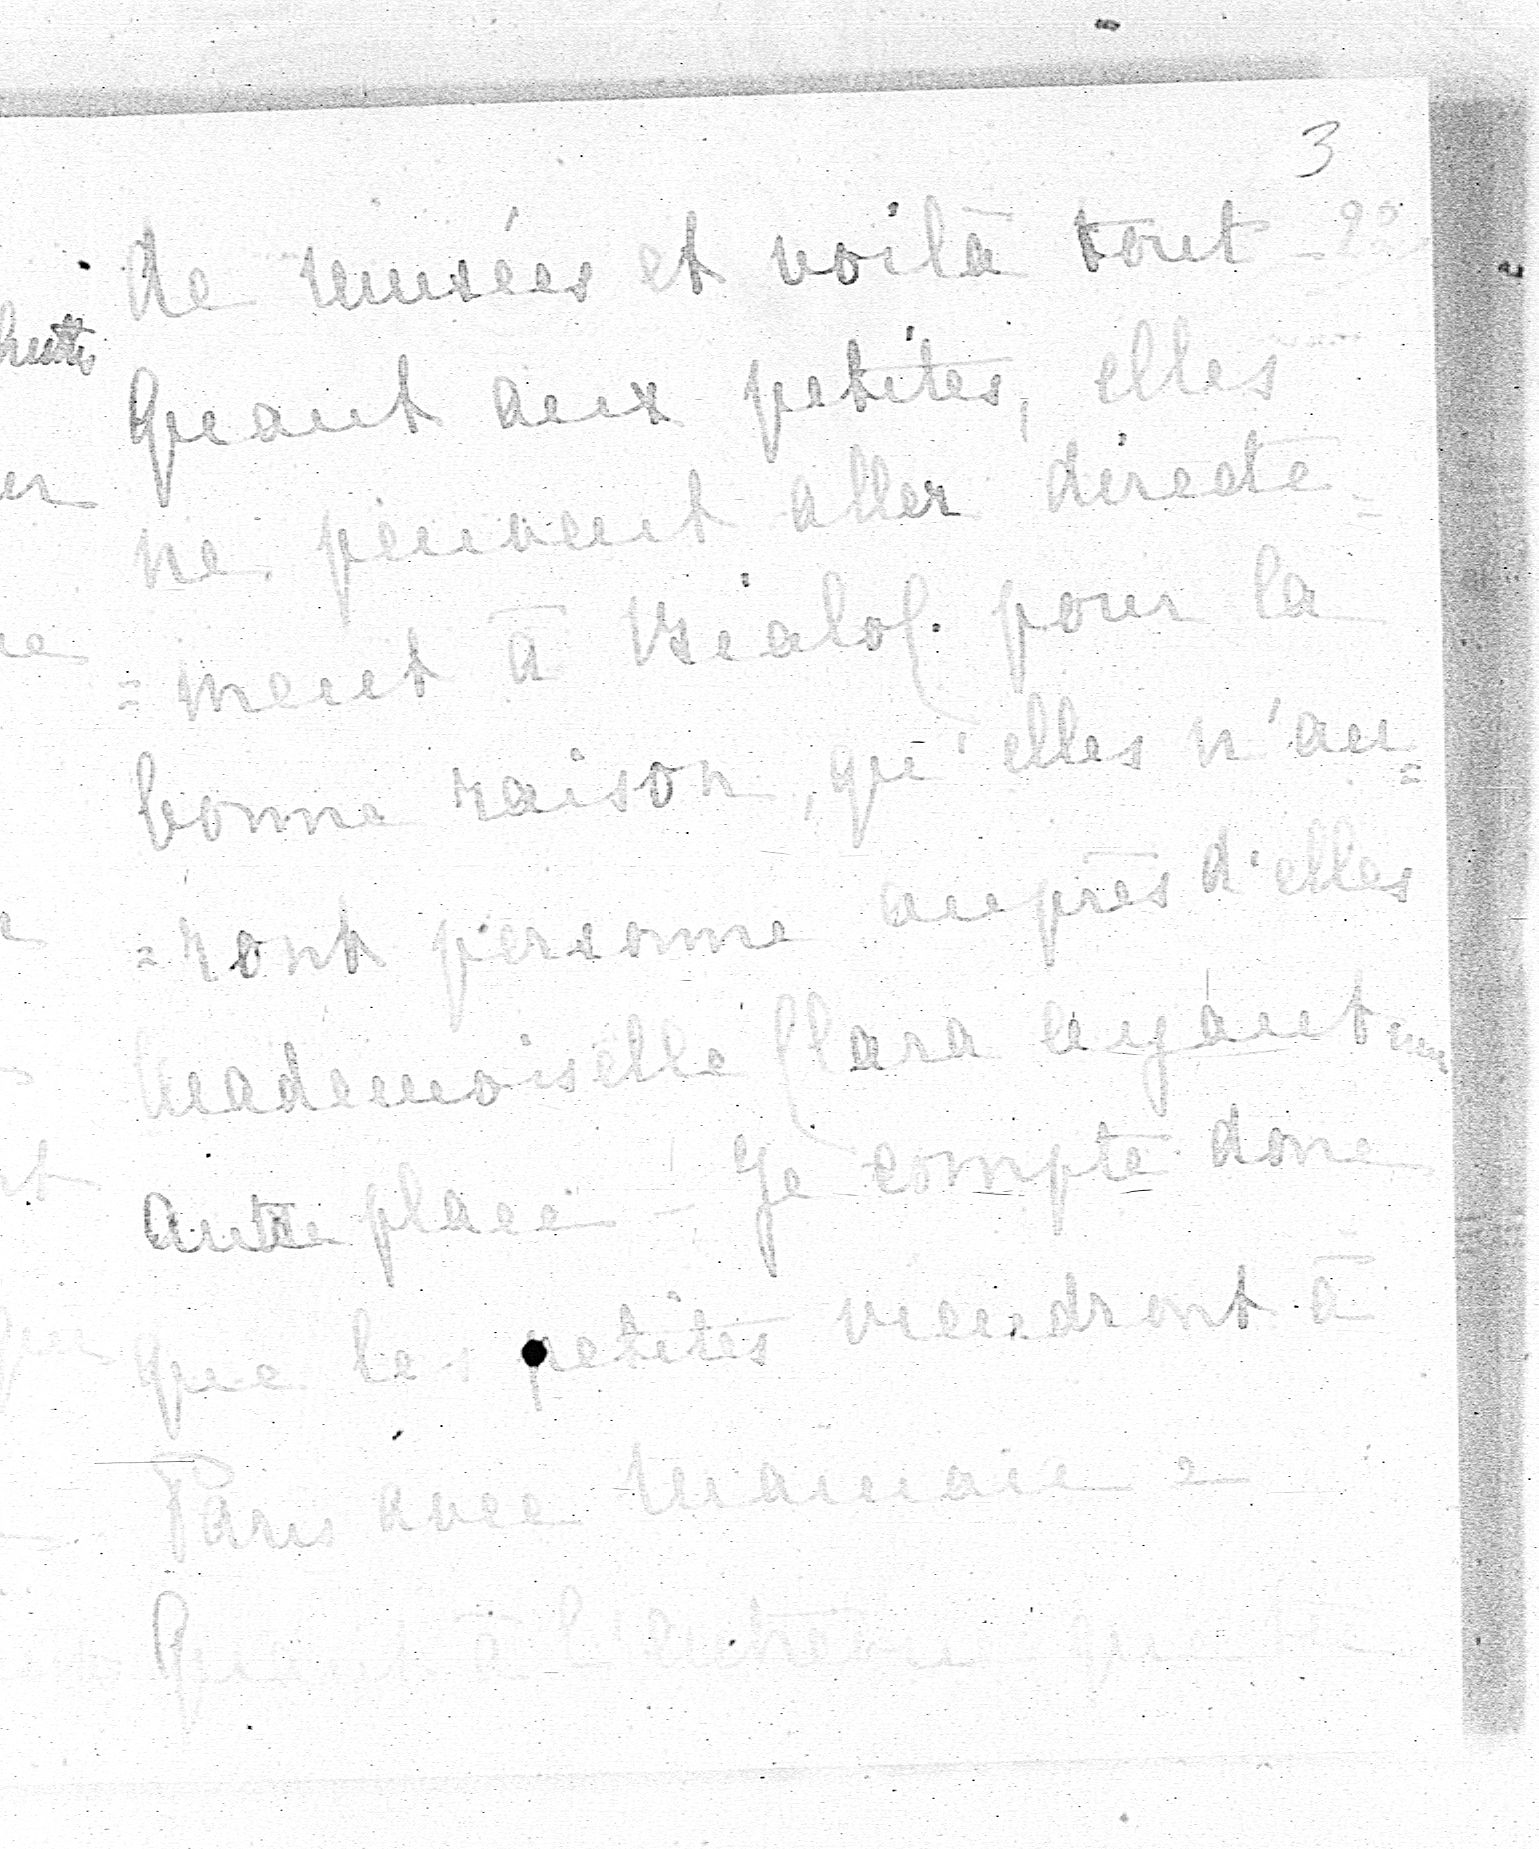 3
de musées et voilà tout -
Quant aux petites, elles
ne peuvent aller directe-
=ment à Bialoç. pour la
bonne raison, qu'elles n'au=
=ront personne auprès d'elles
Mademoiselle Clara ayant une
autre place - Je compte donc
que les petites viendront à
Paris avec Maman -
Quant à l'acheteur